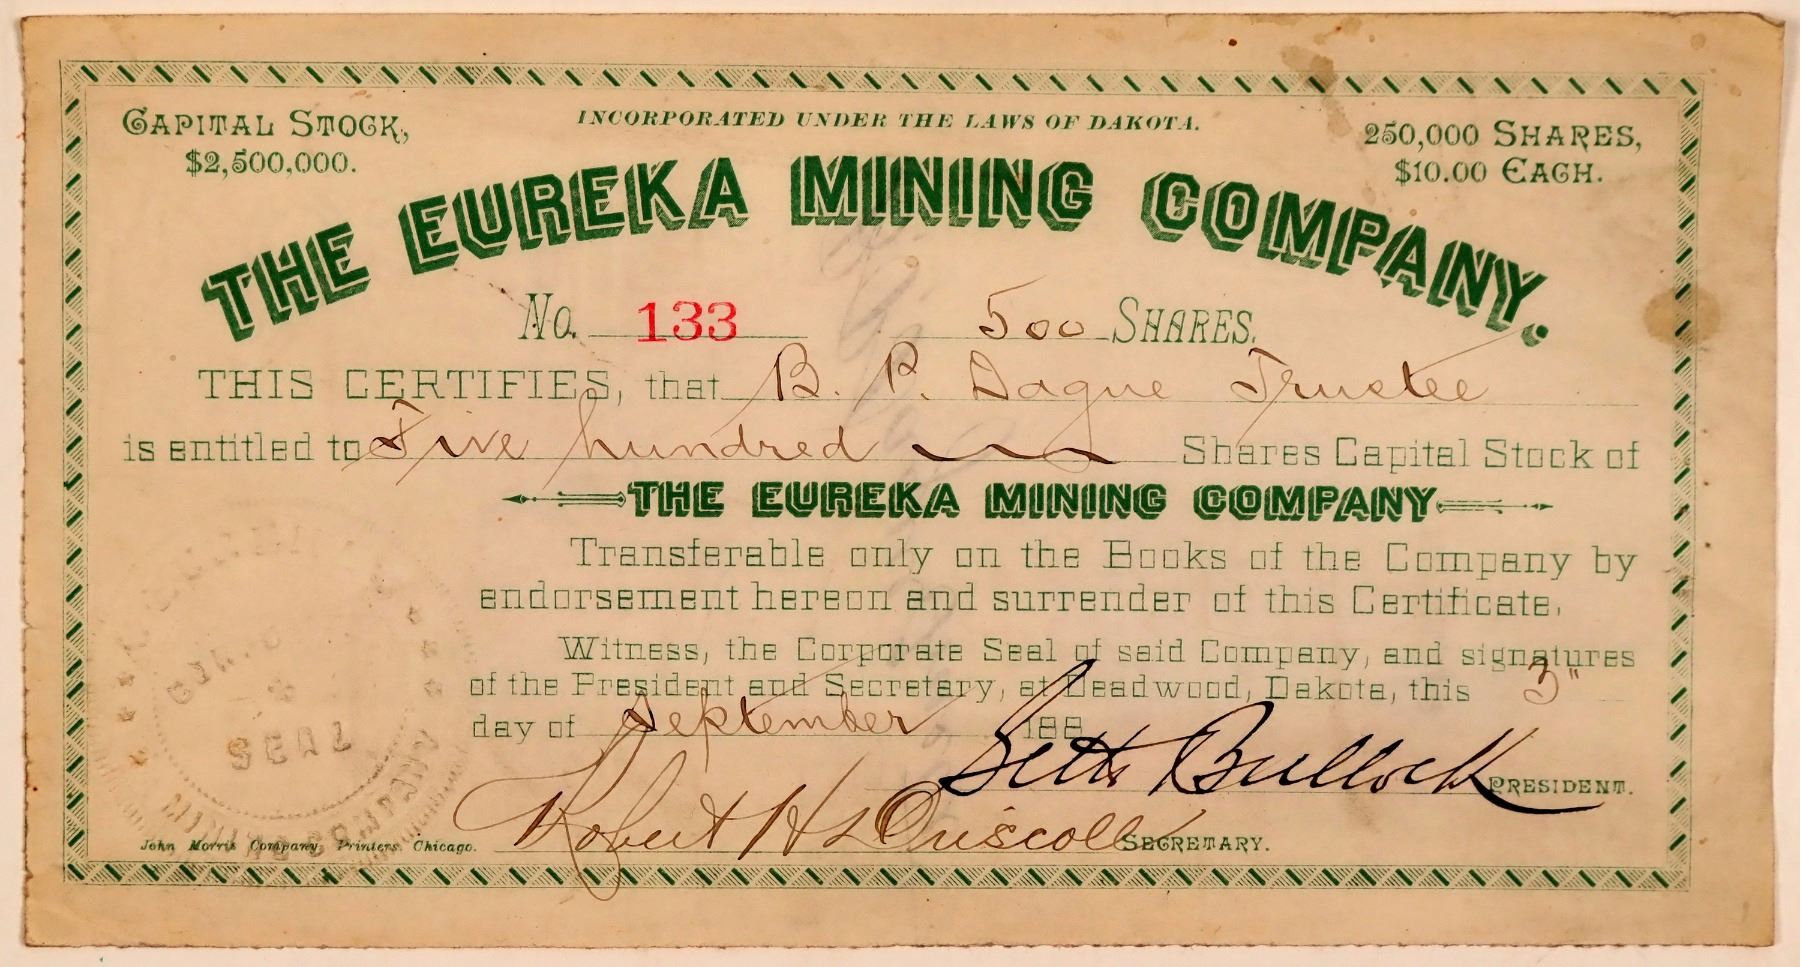 CAPITAL STOCK,
$2,500,000.
INCORPORATED UNDER THE LAWS OF DAKOTA.
250,000 SHARES,
$10.00 EACH.
THE EUREKA MINING COMPANY.
No. 133 500 SHARES.
THIS CERTIFIES, that B. P. Dague Trustee
is entitled to Five hundred Shares Capital Stock of
THE EUREKA MINING COMPANY
Transferable only on the Books of the Company by
endorsement hereon and surrender of this Certificate.
Witness, the Corporate Seal of said Company, and signatures
of the President and Secretary, at Deadwood, Dakota, this 3"
day of September 188
Seth Bullock PRESIDENT.
Robert H Driscoll SECRETARY.
John Morris Company Printers Chicago.
SEAL
MINING COMPANY